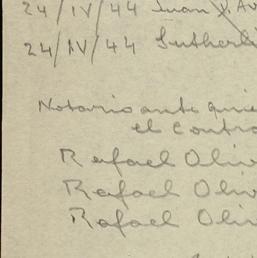 24/IV/44 Juan
24/IV/44 Sutherl
Notario ante quie
el contra
Rafael Oliv
Rafael Oliv
Rafael Oliv